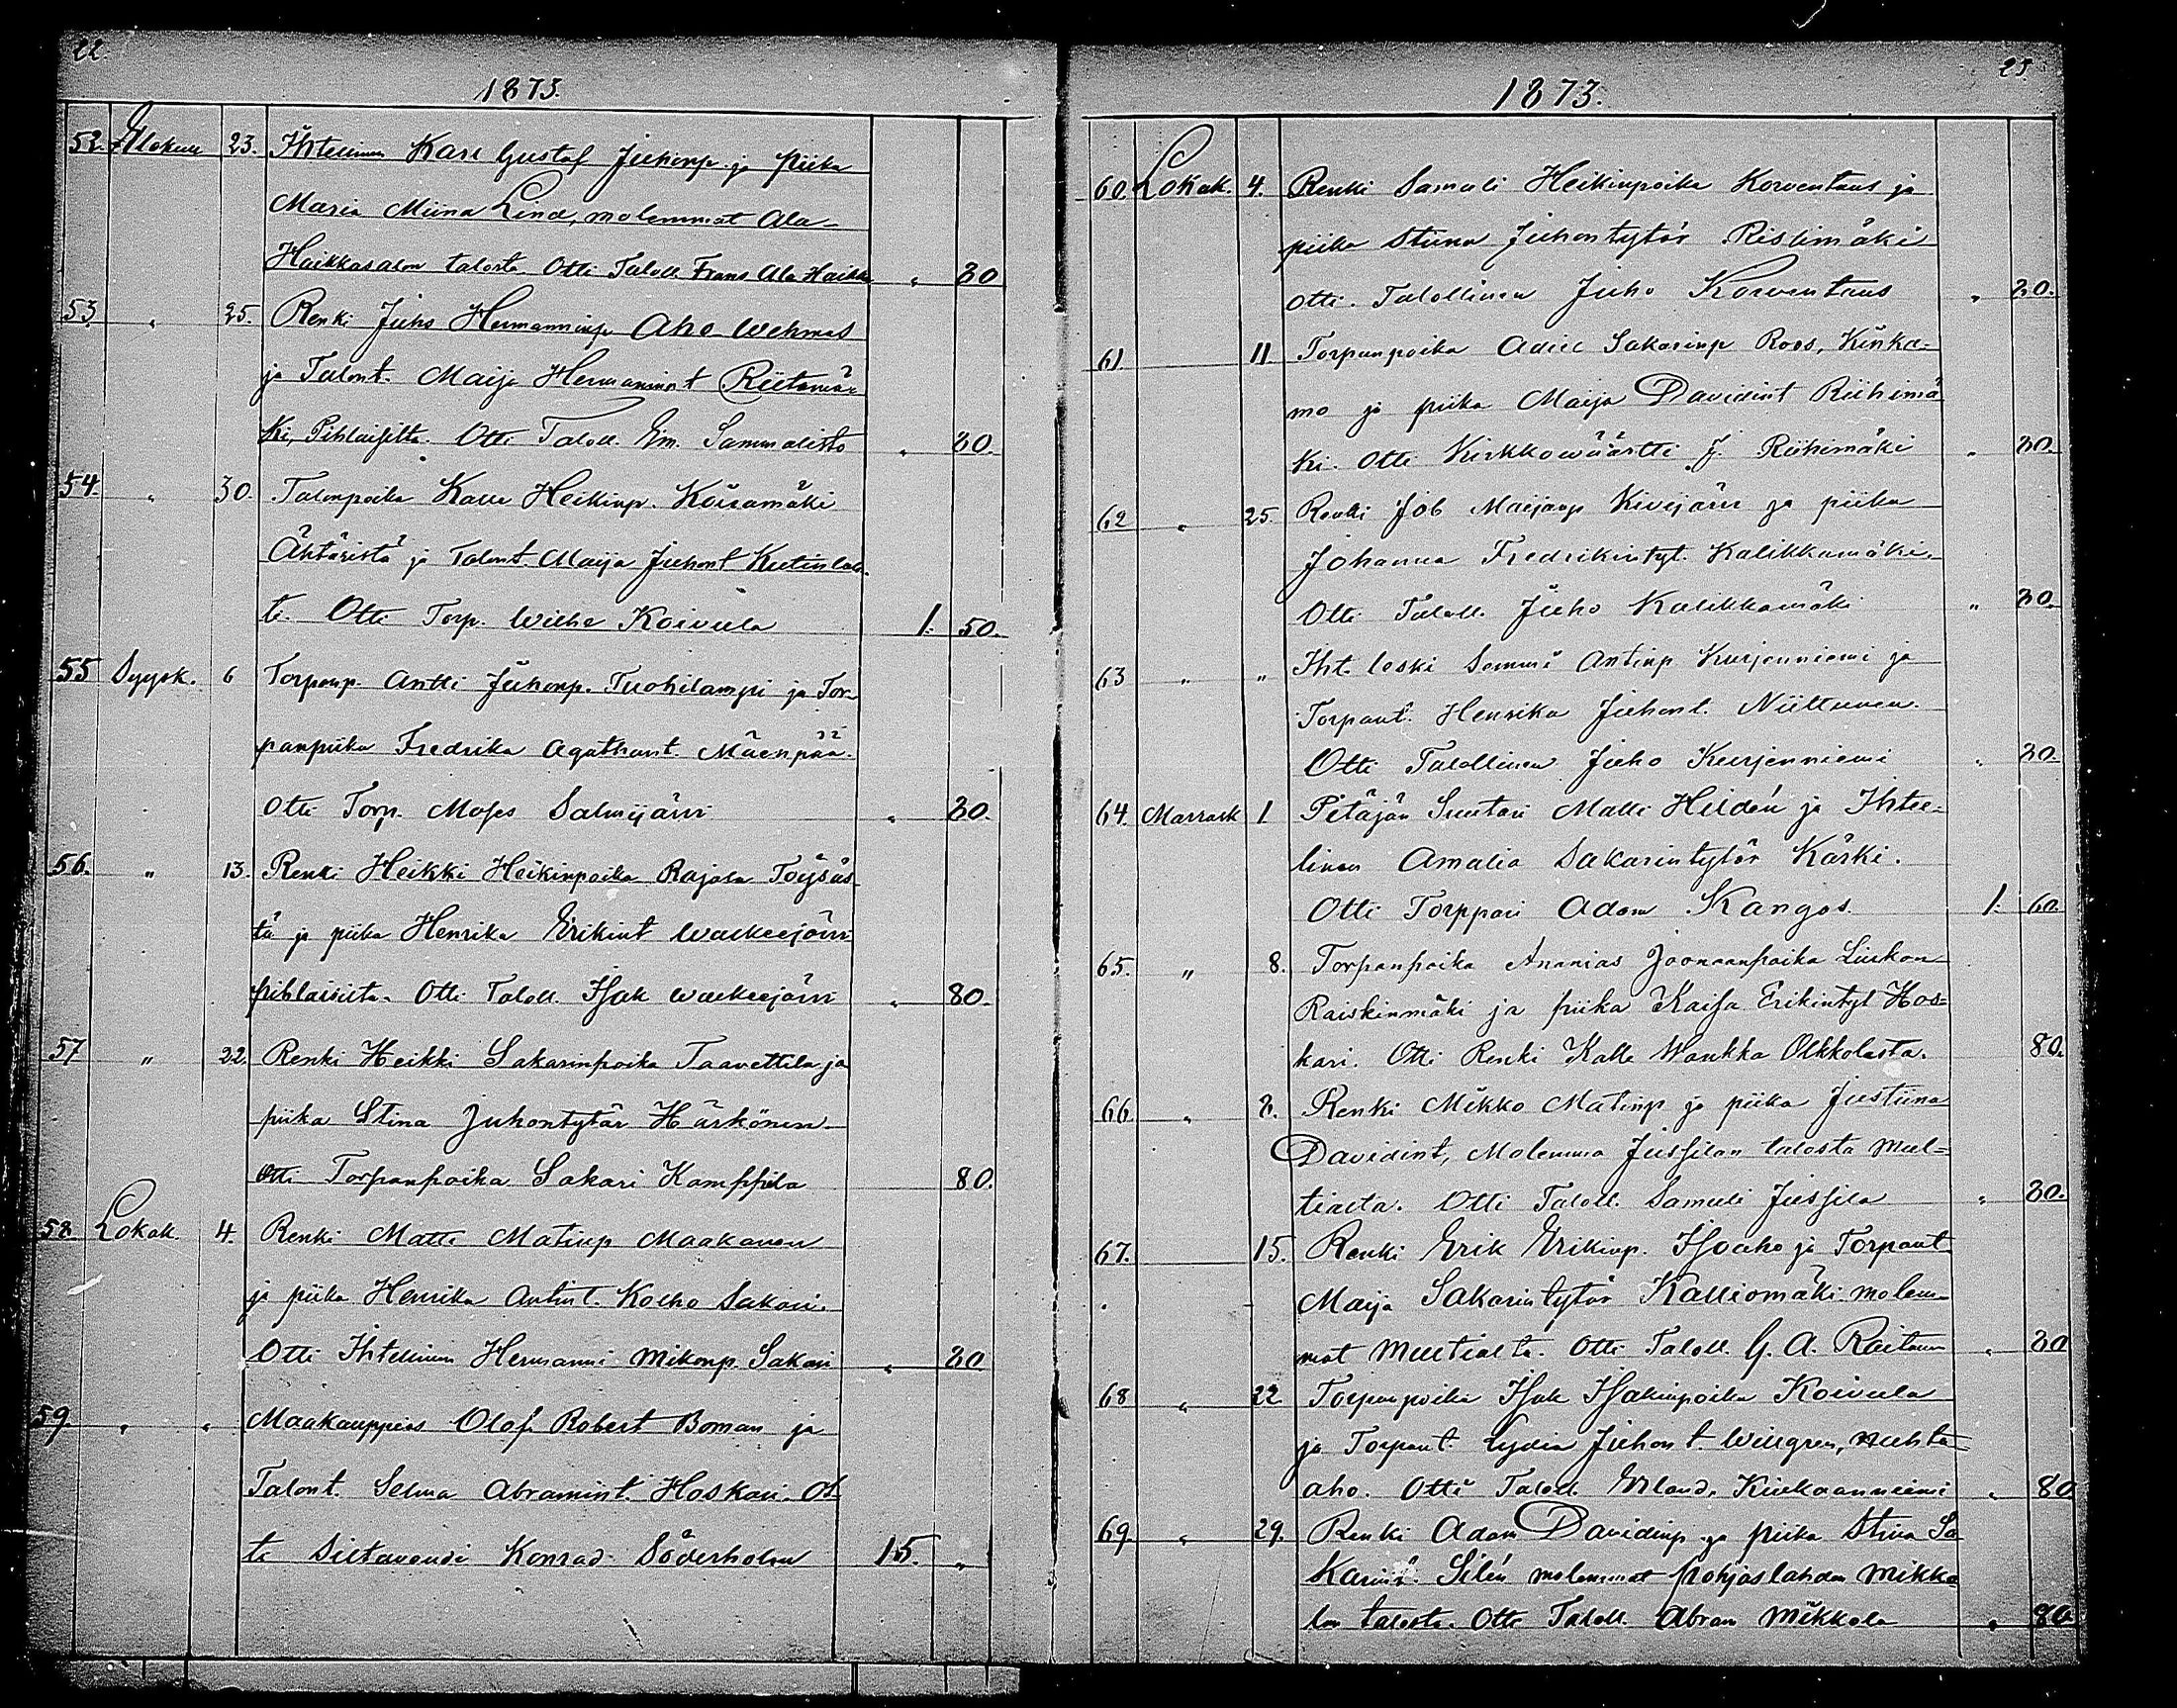 22.
1873.
52. Elokuu 23. Ihtellinen Karl Gustaf Juhonp. ja piika
Maria Miina Lind, molemmat Ala-
Haikkasalon talosta Otti Taloll. Frans Ala Haikka " 80
53. " 25. Renki Juho Hermanninp. Aho Wehmas
ja Talont. Maija Hermanint Riitamä-
ki, Pihlajisilta. Otti Taloll. Em. Sammalisto " 80.
54. " 30. Talonpoika Kalle Heikinp. Koiramäki
Ähtäristä ja Talont. Maija Juhont Kutinlah-
ti. Otti Torp. Wilhe Koivula 1. 50.
55 Syysk. 6 Torpanp. Antti Juhonp. Tuohilampi ja Tor-
panpiika Fredrika Agathant. Mäenpää.
Otti Torp. Moses Salmijärvi " 80.
56. " 13. Renki Heikki Heikinpoika Rajala Töysäs-
tä ja piika Henrika Erikint Walkeejärvi
pihlaisista. Otti Taloll. Isak Walkeejärvi " 80.
57 " 22. Renki Heikki Sakarinpoika Taavettila ja
piika Stina Juhontytär Härkönen
Otti Torpanpoika Sakari Kamppila 80.
58. Lokak. 4. Renki Matti Matinp Maakanen
ja piika Henrika Antint. Kolho Sakari.
Otti Ihtellinen Hermanni Mikonp. Sakari " 80
59. " " Maakauppias Olof Robert Boman ja
Talont. Selma Abramint. Hoskari. Ot-
ti Siltavouti Konrad Söderholm 15. "
23
1873.
60. Lokak. 4. Renki Samuli Heikinpoika Korventaus ja
piika Stiina Juhontytär Ristimäki
Otti. Talollinen Juho Korventaus " 80.
61. 11 Torpanpoika Adiel Sakarinp Roos, Kinka-
mo ja piika Maija Davidint Riihimä
ki. Otti Kirkkowäärtti J. Riihimäki " 80.
62 " 25. Renki Job Maijanp Kivijärvi ja piika
Johanna Fredrikintyt. Kalikkamäki.
Otti Taloll. Juho Kalikkamäki " 80.
63 " " Iht. leski Sammi Antinp Kurjenniemi ja
Torpant. Henrika Juhont. Niittunen.
Otti Talollinen Juho Kurjenniemi " 80.
64. Marrask 1. Pitäjän Suutari Malli Hildén ja Ihtel-
linen Amalia Sakarintytär Kärki.
Otti Torppari Adam Kangas. 1. 60.
65. " 8. Torpanpoika Ananias Joonaanpoika Liukon
Raiskinmäki ja piika Kaisa Erikintyt Hos=
kari. Otti Renki Kalle Wankka Olkkolasta. 80.
66. " 8. Renki Mikko Matinp ja piika Justiina
Davidint, Molemma Jussilan talosta Mul=
tialta. Otti Taloll. Samuli Jussila " 80.
67. 15. Renki Erik Erikinp. Isoaho ja Torpant
Maija Sakarintytär Kalliomäki molem-
mat Multialta. Otti Taloll. G. A. Raitanen " 80
68 " 22 Torpanpoika Isak Isakinpoika Koivula
ja Torpant. Lydia Juhont. Willgren, Multa-
aho. Otti Taloll. Erland. Kiukaanniemi " 80
69. " 29. Renki Adam Davidinp. ja piika Stina Sa
karint. Silén molemmat Pohjaslahden Mikko
lan talosta. Otti Taloll. Abram Mikkola " 80